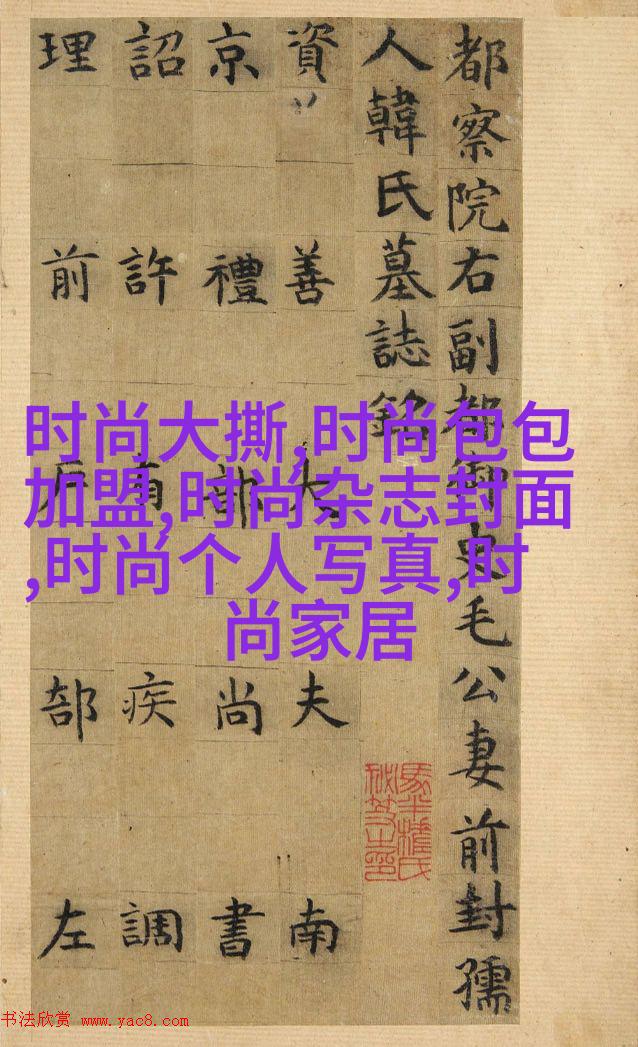 都察院右副都御史毛公妻前封孺
人韓氏墓誌銘
資善大夫南
京禮部尚書
詔許有疾調
理前戶部左
时尚大撕,时尚包包
加盟,时尚杂志封面
,时尚个人写真,时
尚家居
书法欣赏 www.yac8.com